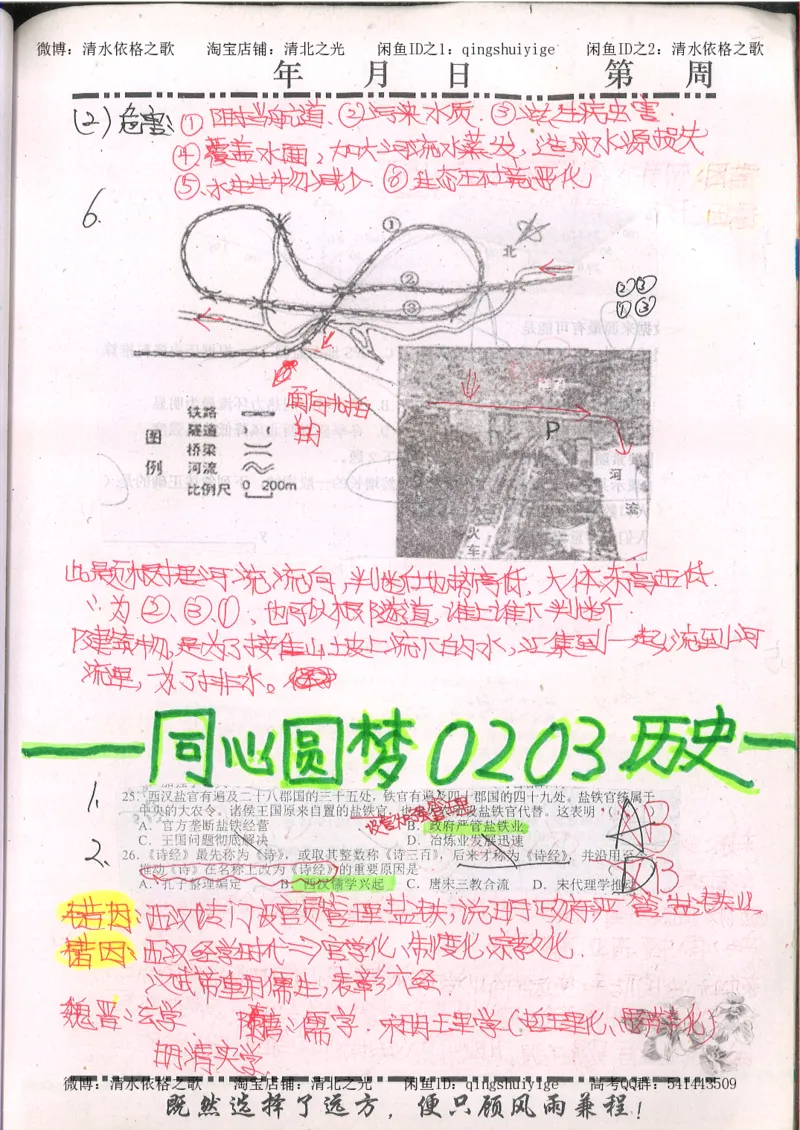 微博：清水依格之歌 淘宝店铺：清北之光 闲鱼ID之1：qingshuiyige 闲鱼ID之2：清水依格之歌
年 月 日 第 周
(2) 危害：① 阻塞航道、② 污染水质、③ 滋生病虫害
④ 覆盖水面，加大河流水蒸发，造成水源损失
⑤ 水生生物减少、⑥ 生态环境恶化
6.
① ② ③ 北
②③
①③
面向北拍
拍
隧子
P
河
流
火
车
图例
铁路
隧道
桥梁
河流
比例尺 0 200m
此题根据河流流向，判断出地势高低，大体东高西低.
∴为②、③、①，也可以根据隧道，谁上谁下判断
建筑物，是为了接住山坡上流下的水，汇集到一起，流到河
流里，为了排水。
同心圆梦0203历史
1.
25. 西汉盐官有遍及二十八郡国的三十五处，铁官有遍及四十郡国的四十九处。盐铁官统属于
中央的大农令。诸侯王国原来自置的盐铁官，也为大农令所设盐铁官代替。这表明
A. 官方垄断盐铁经营 B. 政府严管盐铁业
C. 王国问题彻底解决 D. 冶炼业发展迅速
AB
2.
26.《诗经》最先称为《诗》，或取其整数称《诗三百》，后来才称为《诗经》，并沿用至
推动《诗》在名称上改为《诗经》的重要原因是
A. 孔子整理编定 B. 西汉儒学兴起 C. 唐宋三教合流 D. 宋代理学推
DB
错因：西汉专门设官员管理盐铁，说明政府严管盐铁业
错因：西汉经学时代⇒官学化、制度化、宗教化.
汉武帝重用儒生，表彰六经.
魏晋：玄学 隋唐：儒学. 宋明理学
明清实学
微博：清水依格之歌 淘宝店铺：清北之光 闲鱼ID：qingshuiyige 高考QQ群：541443509
既然选择了远方，便只顾风雨兼程！